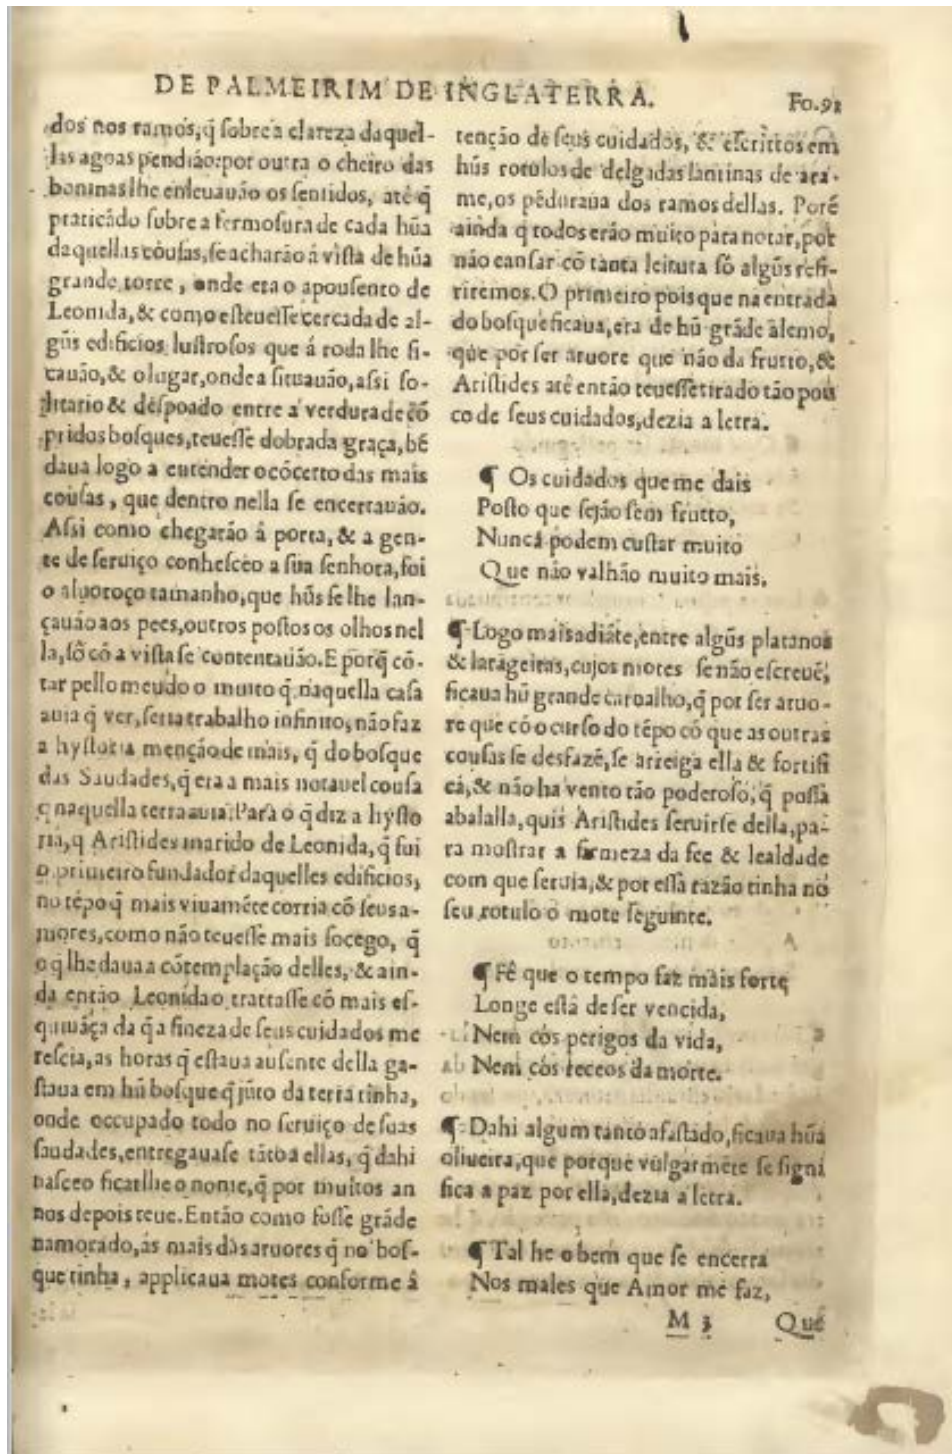 DE PALMEIRIM DE INGLATERRA.
Fo.91
dos nos ramos,q̃ ſobre a clareza daquel-
las agoas pendião:por outra o cheiro das
boninas lhe enleuauão os ſentidos, até q̃
praticãdo ſobre a fermoſura de cada hũa
daquellas cóuſas,ſe acharão á viſta de hũa
grande torre, onde era o apouſento de
Leonida,& como eſteueſſe cercada de al-
gũs edificios luſtroſos que á roda lhe fi-
cauão,& o lugar,onde a ſituauão,aſſi ſo-
litario & deſpoado entre a verdura de cõ
pridos boſques,teueſſe dobrada graça,bẽ
daua logo a entender o cõcerto das mais
couſas, que dentro nella ſe encerrauão.
Aſſi como chegarão á porta, & a gen-
te de ſeruiço conheſceo a ſua ſenhora,foi
o aluoroço tamanho,que hũs ſe lhe lan-
çauão aos pees,outros poſtos os olhos nel
la,ſô cõ a viſta ſe contentauão.E porq̃ cõ-
tar pello meudo o muito q̃ naquella caſa
auia q̃ ver,ſeria trabalho infinito,não faz
a hyſtoria menção de mais, q̃ do boſque
das Saudades,q̃ era a mais notauel couſa
q̃ naquella terra auia.Para o q̃ diz a hyſto
ria,q̃ Ariſtides marido de Leonida,q̃ fui
o primeiro fundador daquelles edificios,
no tẽpo q̃ mais viuamẽte corria cõ ſeus a-
mores,como não teueſſe mais ſocego, q̃
o q̃ lhe daua a cõtemplação delles, & ain-
da então Leonida o trattaſſe cõ mais eſ-
quiuãça da q̃ a fineza de ſeus cuidados me
reſcia,as horas q̃ eſtaua auſente della ga-
ſtaua em hũ boſque q̃ jũto da terra tinha,
onde occupado todo no ſeruiço de ſuas
ſaudades,entregauaſe tãto a ellas, q̃ dahi
naſceo ficarlhe o nome,q̃ por muitos an
nos depois teue.Então como foſſe grãde
namorado,ás mais das aruores q̃ no boſ-
que tinha, applicaua motes conforme á
tenção de ſeus cuidados, & eſcrittos em
hũs rotulos de delgadas lantinas de ara-
me,os pẽduraua dos ramos dellas. Porẽ
ainda q̃ todos erão muito para notar,por
não canſar cõ tanta leitura ſó algũs refi-
riremos.O primeiro pois que na entrada
do boſque ficaua, era de hũ grãde alemo,
que por ſer aruore que não da frutto,&
Ariſtides atê então teueſſe tirado tão pou
co de ſeus cuidados,dezia a letra.
¶ Os cuidados que me dais
Poſto que ſejão ſem frutto,
Nunca podem cuſtar muito
Que não valhão muito mais.
¶ Logo mais adiãte,entre algũs platanos
& larãgeiras, cujos motes ſe não eſcreuẽ,
ficaua hũ grande caroalho,q̃ por ſer aruo-
re que cõ o curſo do tẽpo cõ que as outras
couſas ſe desfazẽ,ſe arreiga ella & fortifi
cá,& não ha vento tão poderoſo, q̃ poſſa
abalalla, quis Ariſtides ſeruirſe della,pa-
ra moſtrar a firmeza da fee & lealdade
com que ſeruia,& por eſſa razão tinha no
ſeu rotulo o mote ſeguinte.
¶ Fê que o tempo faz mais forte
Longe eſtá de ſer vencida,
Nem cós perigos da vida,
Nem cós receos da morte.
¶ Dahi algum tanto afaſtado,ficaua hũa
oliueira,que porque vulgarmẽte ſe ſigni
fica a paz por ella,dezia a letra.
¶ Tal he o bem que ſe encerra
Nos males que Amor me faz,
M 3 Que